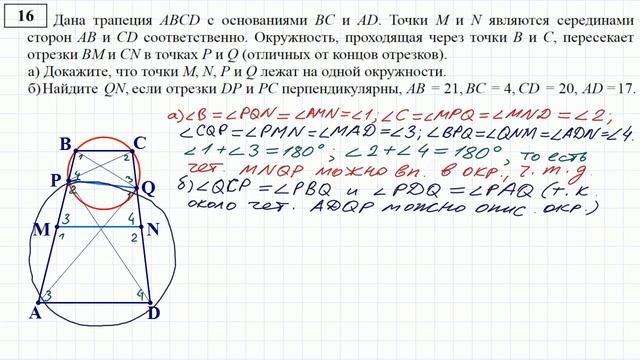 16
Дана трапеция ABCD с основаниями BC и AD. Точки M и N являются серединами
сторон AB и CD соответственно. Окружность, проходящая через точки B и C, пересекает
отрезки BM и CN в точках P и Q (отличных от концов отрезков).
а) Докажите, что точки M, N, P и Q лежат на одной окружности.
б) Найдите QN, если отрезки DP и PC перпендикулярны, AB = 21, BC = 4, CD = 20, AD = 17.
а) ∠B = ∠PQN = ∠AMN = ∠1, ∠C = ∠MPQ = ∠MND = ∠2;
∠CQP = ∠PMN = ∠MAD = ∠3; ∠BPQ = ∠QNM = ∠ADN = ∠4.
∠1 + ∠3 = 180°; ∠2 + ∠4 = 180°, то есть
чет. MNQP можно вп. в окр., ч.т.д.
б) ∠QCP = ∠PBQ и ∠PDQ = ∠PAQ (т.к.
около чет. ADQP можно опис. окр.)
B C
1 2
P 4 3 Q
2 1
M 3 4 N
1 2
3 4
A D